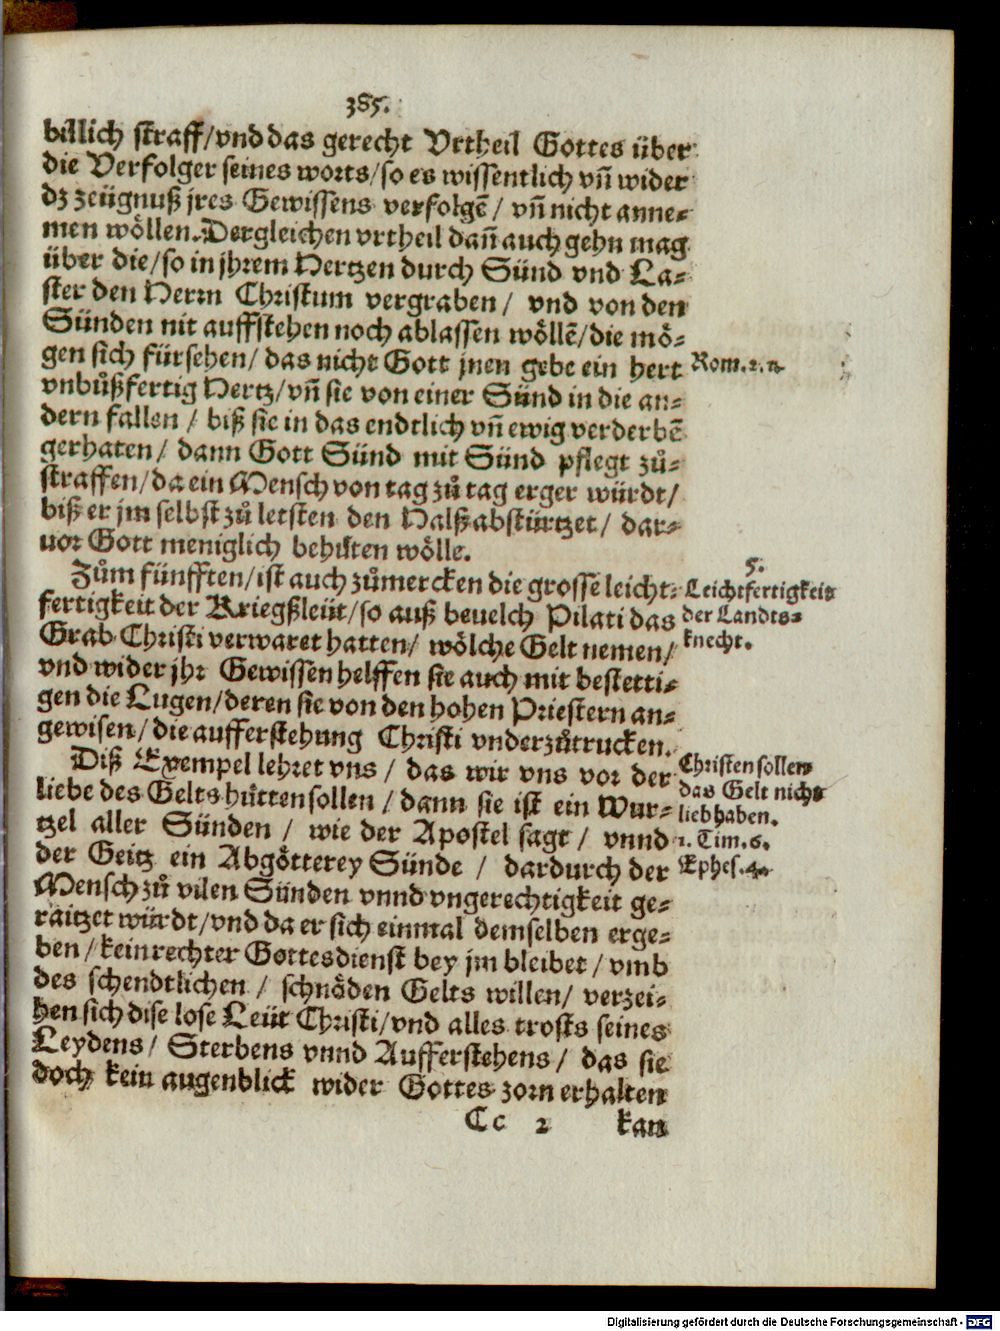 385.
billich straff/vnd das gerecht Vrtheil Gottes über
die Verfolger seines worts/so es wissentlich vñ wider
dz zeügnuß jres Gewissens verfolgẽ/ vñ nicht anne-
men wöllen. Dergleichen vrtheil dañ auch gehn mag
über die/so in jhrem Hertzen durch Sünd vnd La-
ster den Herrn Christum vergraben/ vnd von den
Sünden nit auffstehen noch ablassen wöllẽ/die mö-
gen sich fürsehen/ das nicht Gott jnen gebe ein hert
Rom. 1. 2.
vnbůßfertig Hertz/vñ sie von einer Sünd in die an-
dern fallen / biß sie in das endtlich vñ ewig verderbẽ
gerhaten/ dann Gott Sünd mit Sünd pflegt zů-
straffen/da ein Mensch von tag zů tag erger würdt/
biß er jm selbst zů letsten den Halß abstürtzet/ dar-
uor Gott meniglich behüten wölle.
Zům fünfften/ist auch zůmercken die grosse leicht-
fertigkeit der Kriegßleüt/so auß beuelch Pilati das
Grab Christi verwaret hatten/ wölche Gelt nemen/
vnd wider jhr Gewissen helffen sie auch mit bestetti-
gen die Lugen/deren sie von den hohen Priestern an-
gewisen/die aufferstehung Christi vnderzůtrucken.
5.
Leichtfertigkeit
der Landts-
knecht.
Diß Exempel lehret vns / das wir vns vor der
liebe des Gelts hůtten sollen / dann sie ist ein Wur-
tzel aller Sünden / wie der Apostel sagt / vnnd
der Geitz ein Abgötterey Sünde / dardurch der
Mensch zů vilen Sünden vnnd vngerechtigkeit ge-
raitzet würdt/vnd da er sich einmal demselben erge-
ben/kein rechter Gottesdienst bey jm bleibet/vmb
des schendtlichen / schnöden Gelts willen/ verzei-
hen sich dise lose Leüt Christi/vnd alles trosts seines
Leydens/ Sterbens vnnd Aufferstehens/ das sie
doch kein augenblick wider Gottes zorn erhalten
Christen sollen
das Gelt nicht
lieb haben.
1. Tim. 6.
Ephes. 4.
Cc 2 kan
Digitalisierung gefördert durch die Deutsche Forschungsgemeinschaft - DFG